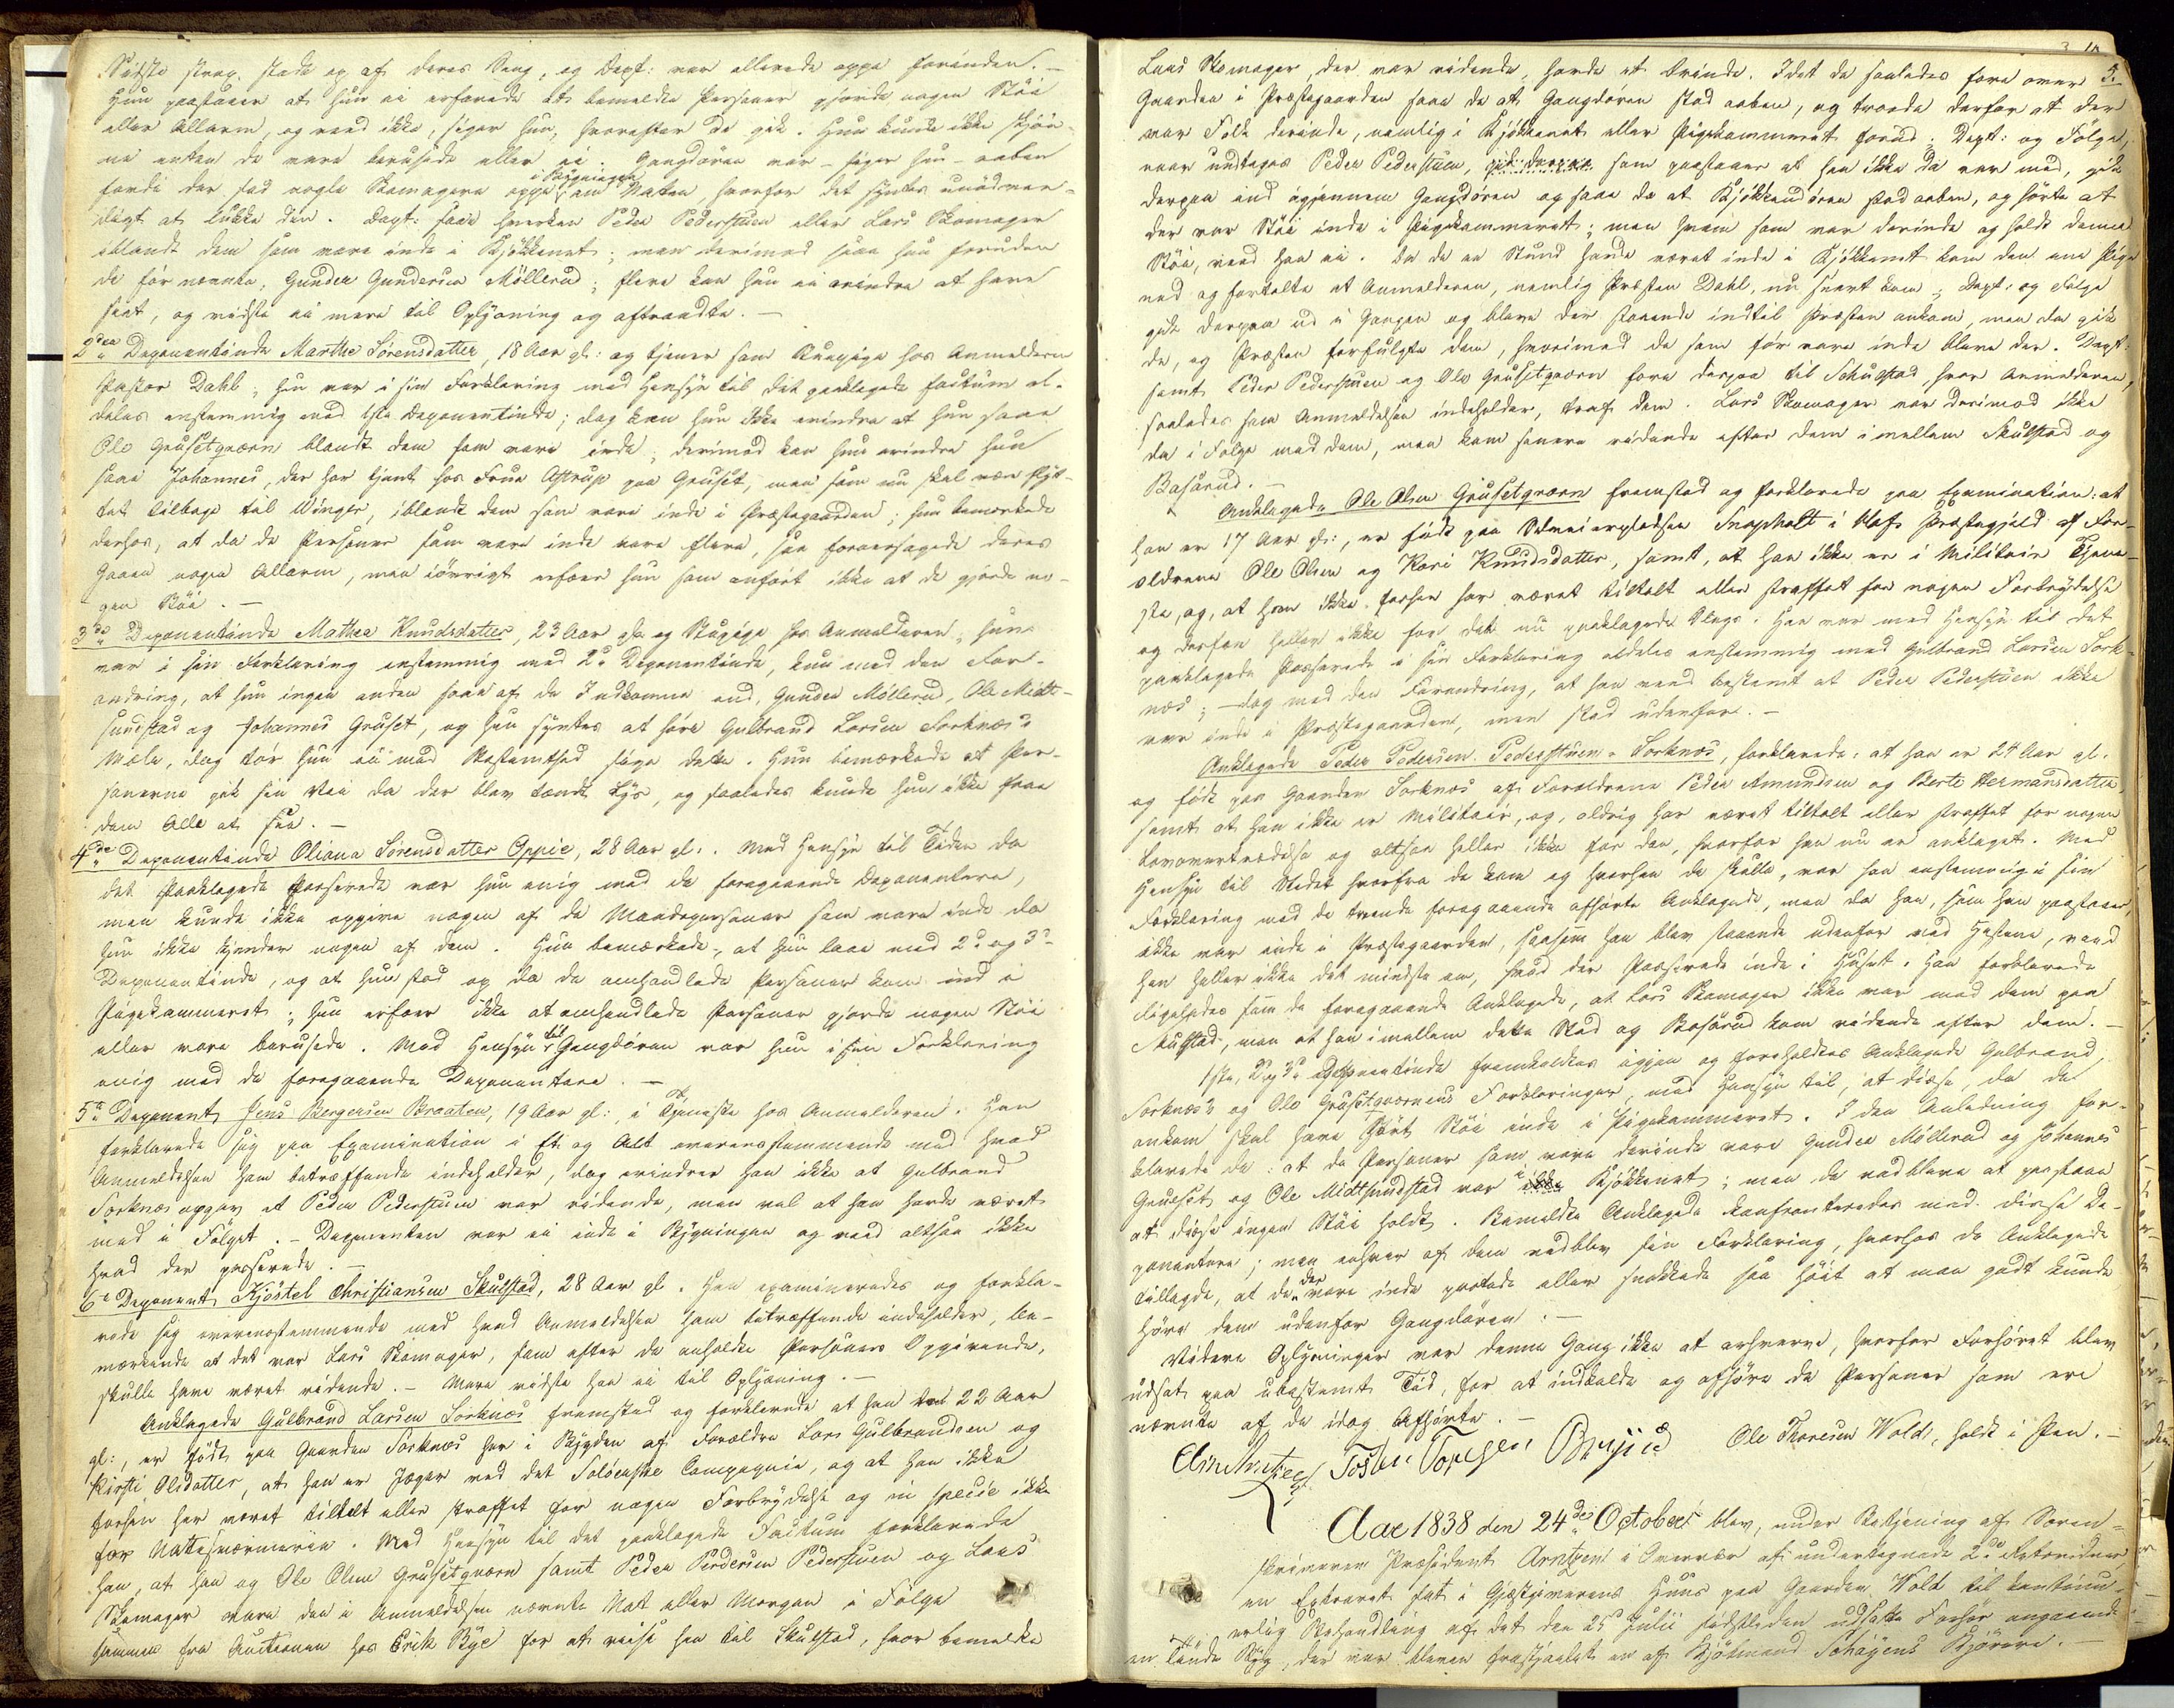 Sidste strax stode op af deres Seng, og Dept: var allerede oppe forinden. —
Hun paastaaer at hun ei erfarede at bemeldte Personer gjorde nogen Stöi
eller Allarm, og veed ikke, siger hun, hvorefter de gik. Hun kunde ikke skjön-
ne enten de vare berusede eller ei. Gangdören var – siger hun – aaben
fordi der sad nogle Skomagere oppe i Bygningen om Natten hvorfor det syntes unödven-
digt at lukke den. Dept: saae hverken Peder Pederstuen eller Lars Skomager
iblandt dem som vare inde i Kjökkenet; men derimod saae hun foruden
de för nævnte, Gunder Gundersen Möllerud; flere kan hun ei erindre at have
seet, og vidste ei mere til Oplysning og aftraadte. —
2den Deponentinde Marthe Sörensdatter, 18 Aar gl: og tjener som Kuepige hos Anmelderen
Pastor Dahl; hun var i sin Forklaring med Hensyn til det paaklagede factum al-
deles enstemmig med 1ste Deponentinde; dog kan hun ikke erindre at hun saae
Ole Grusetqværn blandt dem som vare inde, derimod kan hun erindre hun
saae Johannes, der har tjent hos Frue Astrup paa Gruset, men som nu skal være flyt-
tet tilbage til Winger, iblandt dem som vare inde i Præstegaarden; hun bemærkede
derhos, at da de Personer som vare inde vare flere, saa foraarsagede deres
Gaaen nogen Allarm, men iövrigt erfoer hun som anfört ikke at de gjorde no-
gen Stöi. —
3de Deponentinde Mathea Knudsdatter, 23 Aar gl. og Stuepige hos Anmelderen; hun
var i sin Forklaring enstemmig med 2den Deponentinde, kun med den For-
andring, at hun ingen anden saae af de Indkomne end, Gunder Möllerud, Ole Midt-
sundstad og Johannes Gruset, og hun syntes at höre Gulbrand Larsen Sorknæs's
Mæle, dog tör hun ei med Bestemthed sige dette. Hun bemærkede at Per-
sonerne gik sin Vei da der blev tændt Lys, og saaledes kunde hun ikke faae
dem Alle at see. —
4de Deponentinde Oliana Sörensdatter Oppie, 28 Aar gl. Med Hensyn til Tiden da
det Paaklagede Passerede var hun enig med de foregaaende Deponentere,
men kunde ikke opgive nogen af de Mandspersoner som vare inde da
hun ikke kjender nogen af dem. Hun bemærkede, at hun laae med 2de og 3de
Deponentinde, og at hun stod op da de omhandlede Personer kom ind i
Pigekammeret; hun erfoer ikke at omhandlede Personer gjorde nogen Stöi
eller vare berusede. Med Hensyn til Gangdören var hun i sin Forklaring
enig med de foregaaende Deponentere. —
5te Deponent Jens Bergersen Braaten, 19 Aar gl: i Tjeneste hos Anmelderen. Han
forklarede sig paa Examination i Et og Alt overensstemmende med hvad
Anmeldelsen ham betræffende indeholder, dog erindrer han ikke at Gulbrand
Sorknæs opgav at Peder Pederstuen var ridende, men vel at han havde været
med i Fölget. – Deponenten var ei inde i Bygningen og veed altsaa ikke
hvad der passerede. —
6te Deponent Kjöstel Christiansen Skulstad, 28 Aar gl. Han examineredes og forkla-
rede sig overensstemmende med hvad Anmeldelsen ham betræffende indeholder, be-
mærkende at det var Lars Skomager, som efter de anholdte Personers Opgivende,
skulle have været ridende. – Mere vidste han ei til Oplysning. —
Anklagede Gulbrand Larsen Sorknæs fremstod og forklarede at han er 22 Aar
gl:, er födt paa Gaarden Sorknæs her i Bygden af Forældre Lars Gulbrandsen og
Kirsti Olsdatter, at han er Jæger ved det Solöerske Compagnie, og at han ikke
forhen har været tiltalt eller straffet for nogen Forbrydelse og in specie ikke
for Natesværmerier. Med Hensyn til det paaklagede Factum forklarede
han, at han og Ole Olsen Grusetqværn samt Peder Pedersen Pederstuen og Lars
Skomager vare den i Anmeldelsen nævnte Nat eller Morgen i Fölge
sammen fra Auctionen hos Erik Bye for at reise hen til Skulstad, hvor bemeldte
3.
Lars Skomager, der var ridende, havde et Erinde. Idet de saaledes fore over
Gaarden i Præstegaarden saae de at Gangdören stod aaben, og troede derfor at der
var Folk derinde, nemlig i Kjökkenet eller Pigekammeret forud; Dept: og Fölge,
naar undtages Peder Pederstuen, som paastaaer at han ikke da var med, gik
derpaa ind igjennem Gangdören og saae da at Kjökkendören stod aaben, og hörte at
der var Stöi inde i Pigekammeret; men hvem som var derinde og holdt denne
Stöi, veed han ei. Da de en Stund havde været inde i Kjökkenet kom den ene Pige
ned og fortalte at Anmelderen, nemlig Præsten Dahl, nu snart kom; Dept: og Fölge
gik derpaa ud i Gangen og bleve der staaende indtil Præsten ankom, men da gik
de, og Præsten forfulgte dem, hvorimod de som för vare inde bleve der. Dept:
samt Peder Pederstuen og Ole Grusetqværn fore derpaa til Schulstad, hvor Anmelderen,
saaledes som Anmeldelsen indeholder, traf dem. Lars Skomager var derimod ikke
da i Fölge med dem, men kom senere ridende efter dem imellem Skulstad og
Basärud. —
Anklagede Ole Olsen Grusetqværn fremstod og forklarede paa Examination: at
han er 17 Aar gl:, er födt paa Værneierpladsen Snapholt i Hofs Præstegjeld af For-
ældrene Ole Olsen og Kari Knudsdatter, samt, at han ikke er i Militair Tjene-
ste, og, at han ikke forhen har været tiltalt eller straffet for nogen Forbrydelse
og derfor heller ikke for det nu paaklagede Slags. Han var med Hensyn til det
paaklagede Passerede i sin Forklaring aldeles enstemmig med Gulbrand Larsen Sork-
næs; – dog med den Forandring, at han veed bestemt at Peder Pederstuen ikke
var inde i Præstegaarden, men stod udenfor. —
Anklagede Peder Pedersen Pederstuen – Sorknæs, forklarede: at han er 24 Aar gl.
og födt paa Gaarden Sorknæs af Forældrene Peder Amundsen og Berte Hermansdatter,
samt at han ikke er Militair, og, aldrig har været tiltalt eller straffet for nogen
Lovovertrædelse og altsaa heller ikke for den, hvorfor han nu er anklaget. Med
Hensyn til Stedet hvorfra de kom og hvorhen de skulle, var han enstemmig i sin
Forklaring med de tvende foregaaende afhörte Anklagede, men da han, som han paastaaer,
ikke var inde i Præstegaarden, saasom han blev staaende udenfor ved Hestene, veed
han heller ikke det mindste om, hvad der Passerede inde i Huset. Han forklarede
ligeledes som de foregaaende Anklagede, at Lars Skomager ikke var med dem paa
Skulstad, men at han imellem dette Sted og Basärud kom ridende efter dem. —
1ste, 2de og 3de Deponentinde fremkaldtes igjen og foreholdtes Anklagede Gulbrand
Sorknæs's og Ole Grusetqværnens Forklaringer, med Hensyn til, at disse, da de
ankom skal have hört Stöi inde i Pigekammeret. I den Anledning for-
klarede de: at de Personer som vare derinde vare Gunder Möllerud og Johannes
Grueset og Ole Midtsundstad var i Kjökkenet; men de vedbleve at paastaae
at disse ingen Stöi holdt. Bemeldte Anklagede confronteredes med disse De-
ponentere; men enhver af dem vedblev sin Forklaring, hvorhos de Anklagede
tillagde, at de der vare inde pratede eller snakkede saa höit at man godt kunde
höre dem udenfor Gangdören. —
Videre Oplysninger var denne Gang ikke at erhverve, hvorfor Forhöret blev
udsat paa ubestemt Tid, for at indkalde og afhöre de Personer som ere
nævnte af de idag Afhörte. —
Ole Thoresen Wold, holdt i Pen. —
Aar 1838 den 24de October blev, under Betjening af Soren-
skriveren Præsident Arntzen i Overvær af undertegnede 2de Retsvidner
en Extraret sat i Gjæstgiverens Huus paa Gaarden Wold til kontinu-
erlig Behandling af det den 25de Julii sidstleden udsatte Forhör angaaende
en Tönde Byg, der var bleven frastjaalet en af Kjöbmand Schöyens Kjörere. —